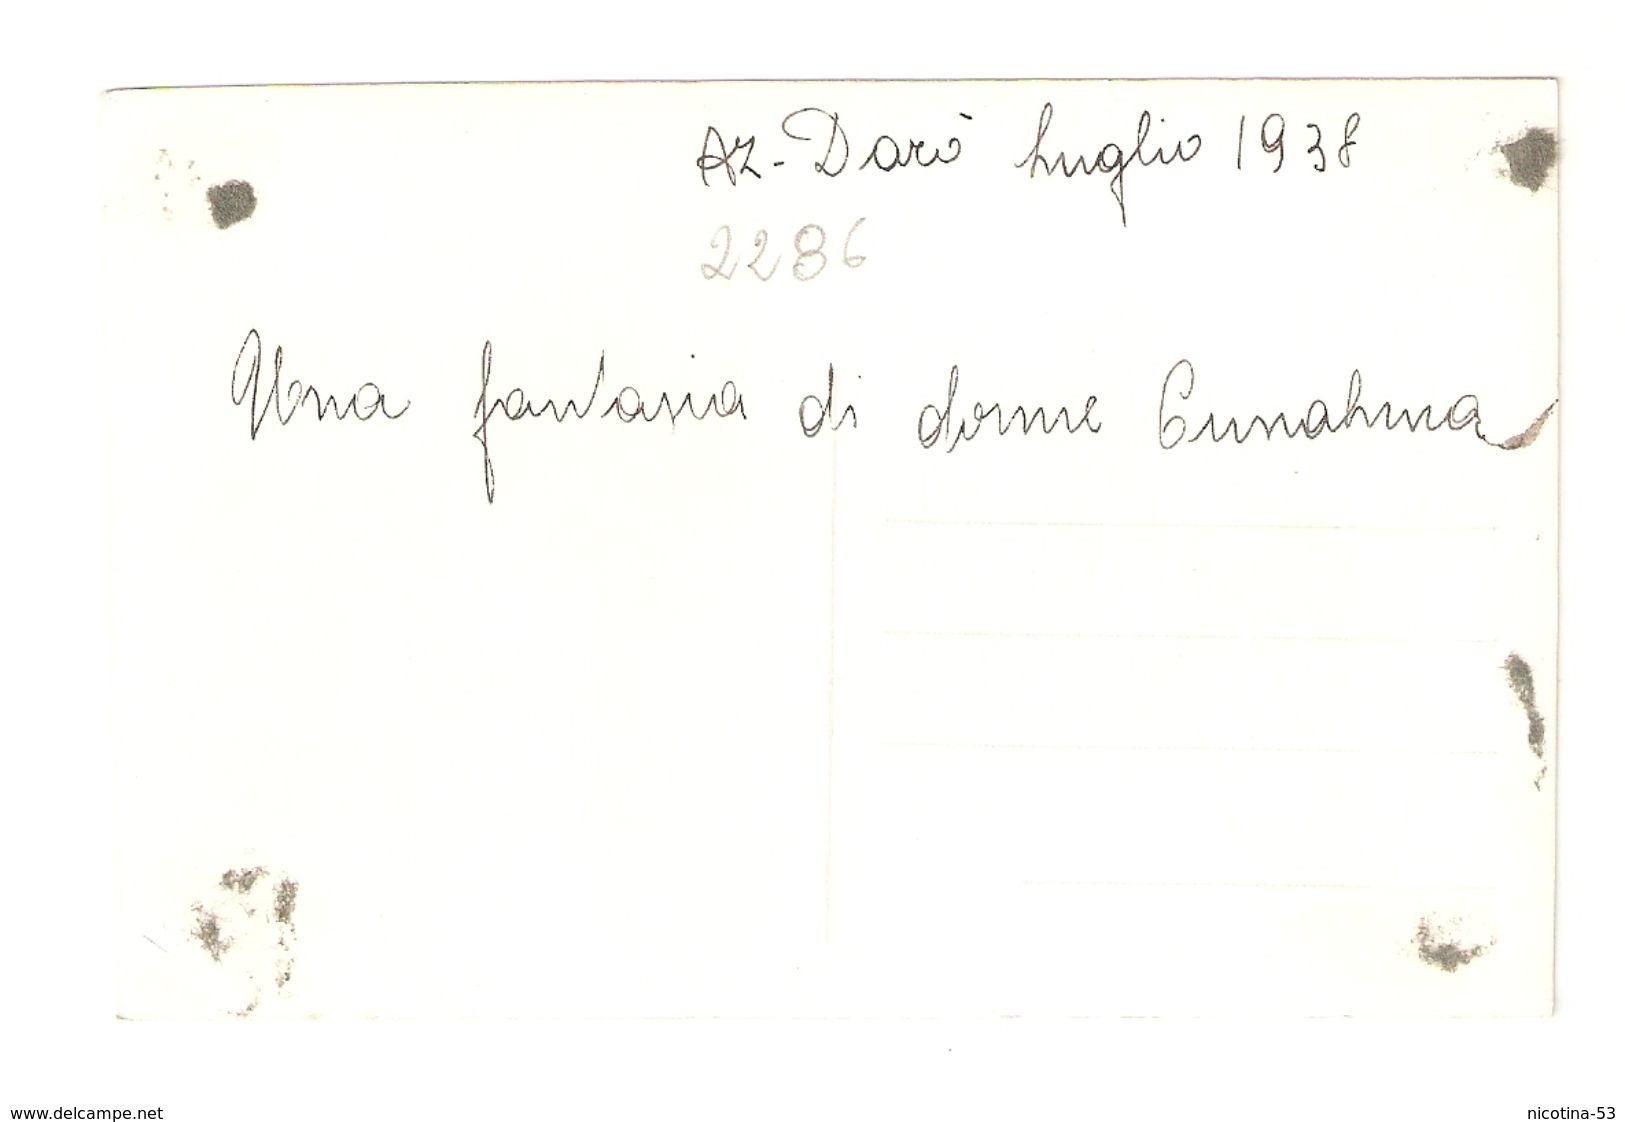 Az-Darò Luglio 1938
2286
Una fantasia di donne Cunahma
www.delcampe.net
nicotina-53